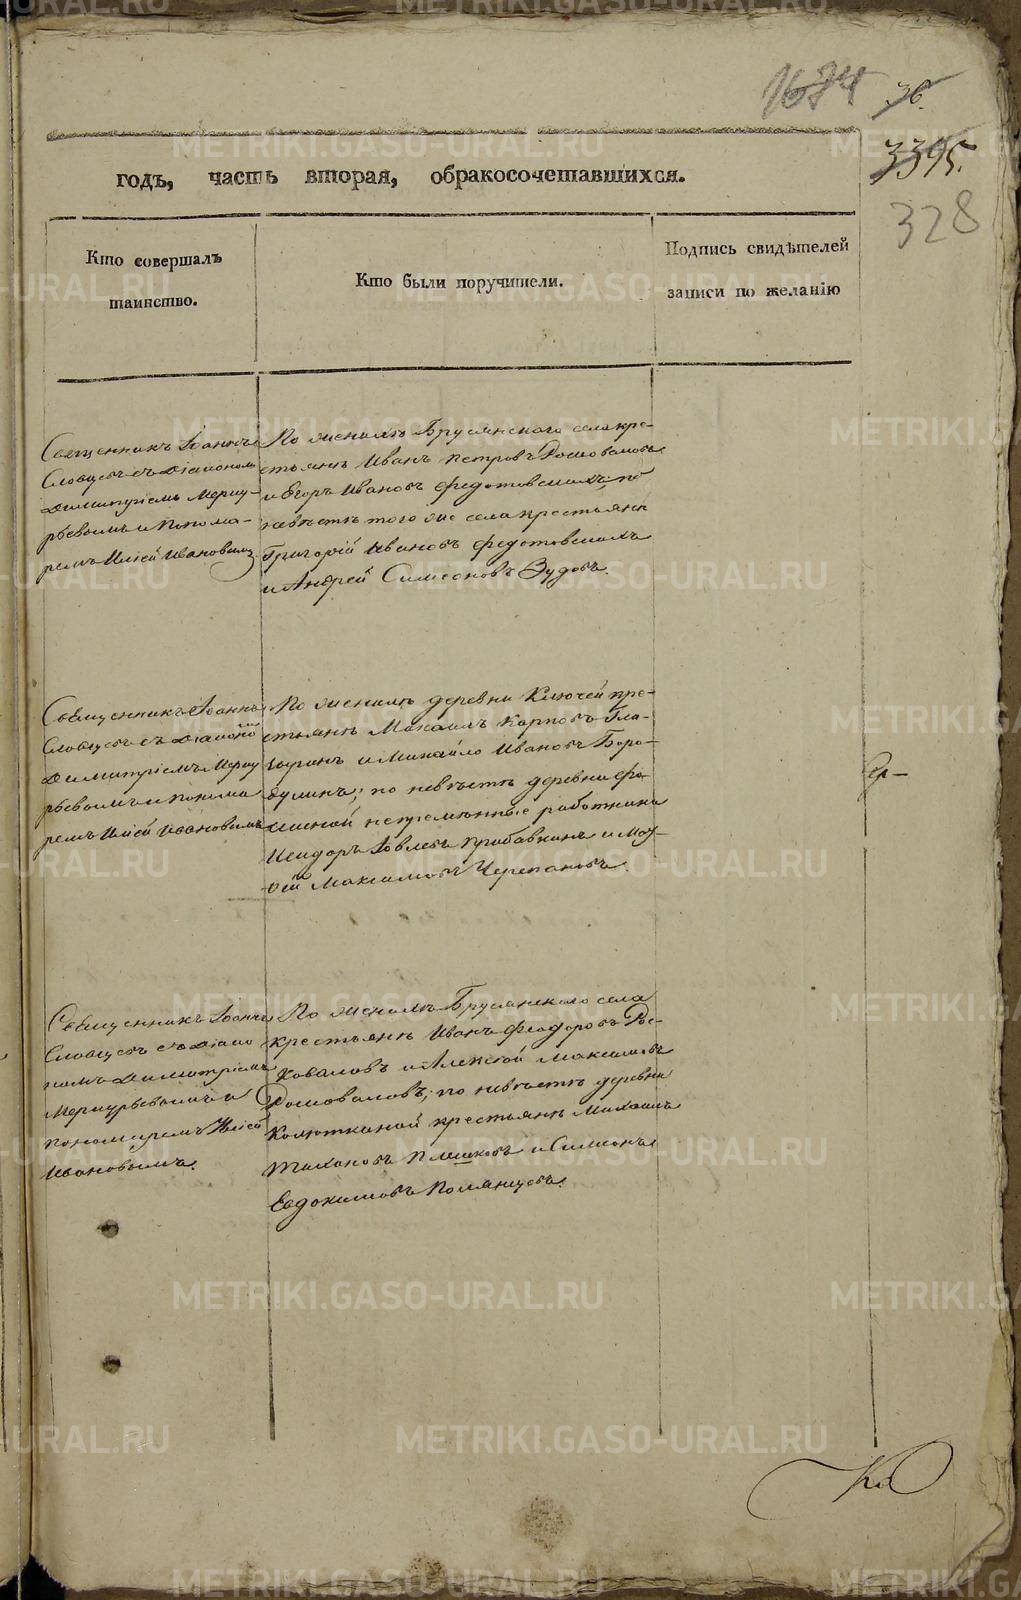 1674
36.
3395.
328
годъ, часть вторая, обракосочетавшихся.
Кто совершалъ
таинство.
Кто были поручители.
Подпись свидѣтелей
записи по желанію
Священникъ Іоаннъ
Словцевъ съ діакономъ
Димитріемъ Мерку-
рьевымъ и понома-
ремъ Иліей Ивановымъ
По женихѣ Брусянскаго села кре-
стьянъ Иванъ Петровъ Рошовалов
и Егоръ Ивановъ Федотовскихъ; по
невѣстѣ того же села крестьяне
Григорій Ивановъ Федотовскихъ
и Андрей Симеоновъ Зудовъ.
Священникъ Іоаннъ
Словцевъ съ діакономъ
Димитріемъ Мерку
рьевымъ и понома
ремъ Иліей Ивановымъ
По женихѣ деревни Ключей кре-
стьянъ Михаилъ Карповъ
и Михайло Ивановъ Боро-
дулинъ; по невѣстѣ деревни
непремѣнные работники
Исидоръ Іовлевъ Прибавкинъ и Мои-
сей Максимовъ Черепановъ.
Священникъ Іоаннъ
Словцевъ съ діако
номъ Димитріемъ
Меркурьевымъ и
пономаремъ Иліей
Ивановымъ.
По женихѣ Брусянскаго села
крестьянъ Иванъ Феодоровъ
и Алексѣй Максимовъ
Рошоваловъ; по невѣстѣ деревни
Колюткиной крестьянъ Михаилъ
Плешковъ и Симеонъ
Евдокимовъ Полянцовъ.
METRIKI.GASO-URAL.RU